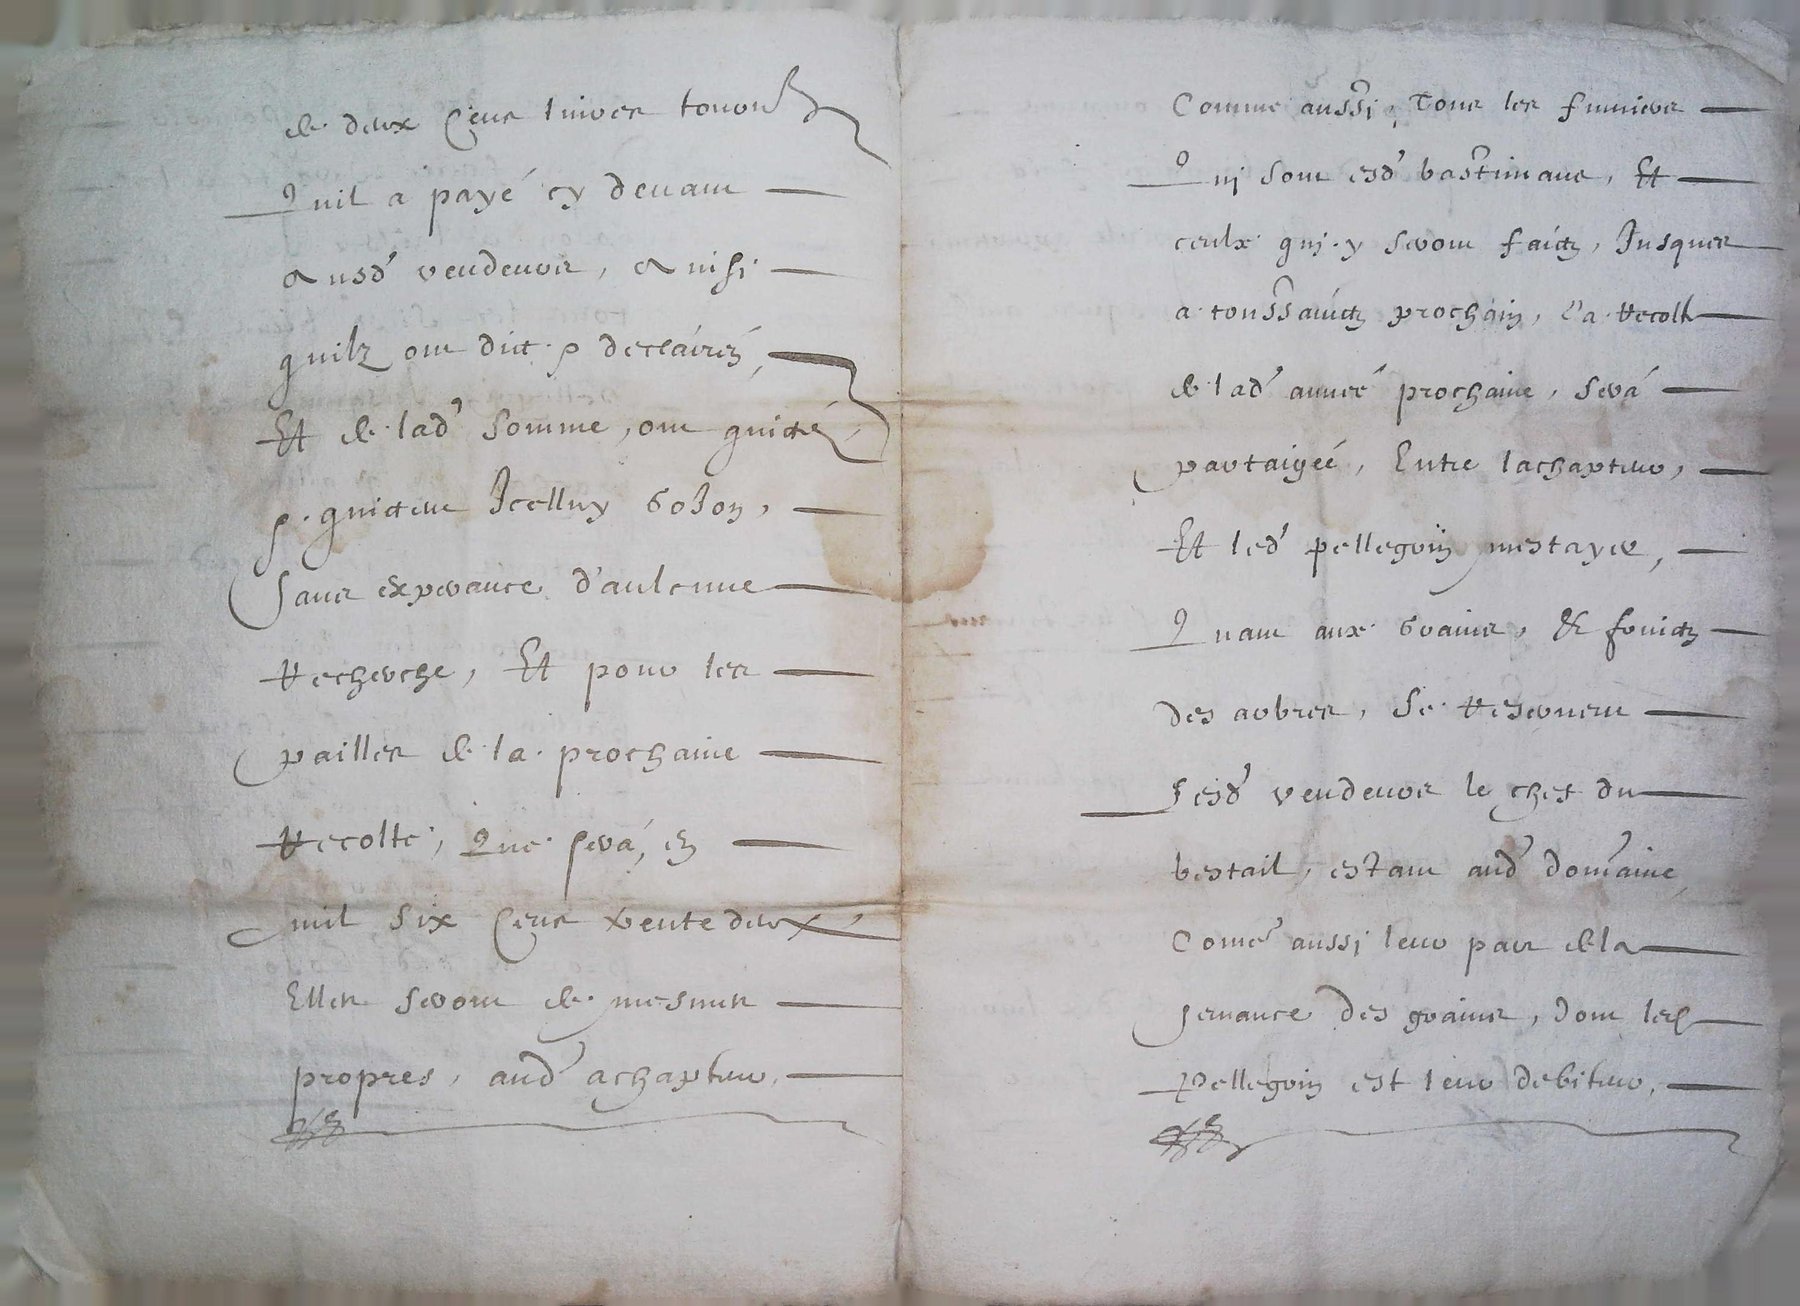 de deux Cens livres tournoys
Quil a payé cy devant
Ausd' vendeurs, Ainsi
quilz ont dict & declairéz,
Et de lad' somme, ont quicté
& quictent Icelluy Goion,
Sans experance d'aulcune
Recherche, Et pour les
pailles de la prochaine
Recolte, Que sera, en
mil six Cens trente deux
Elles seront de mesmes
propres, aud' achapteur,
Comme aussi, Tous les fumiers
Qui sont esd' bastimans, Et
ceulx quj y seront faictz, Jusques
a toussainctz prochain, La Recolte
de lad' année prochaine, sera
partaigéé, Entre lachapteur,
Et led' pellegrin mestayer,
Quant aux Grains, & fruictz
des arbres, Se Reservent
lesd' vendeurs le chef du
bestail, estant aud' domaine
Come' aussi leur part de la
semance des grains, dont led'
Pellegrin est leur debiteur,